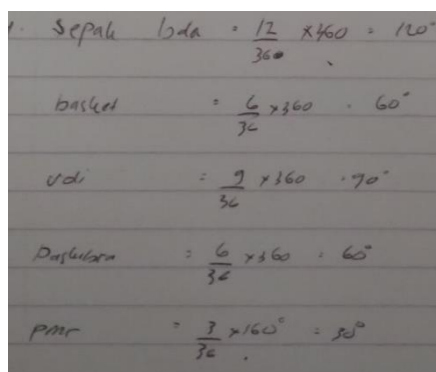 Sepak bola = 12/360 × 360 = 120°
basket = 6/36 × 360 = 60°
voli = 9/36 × 360 = 90°
Paskibra = 6/36 × 360 = 60°
pmr = 3/36 × 160° = 30°